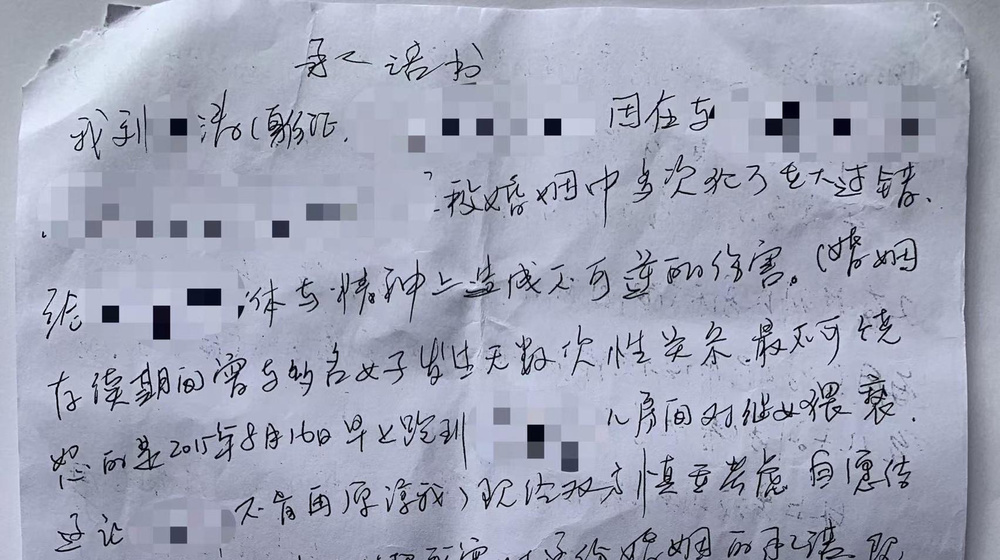 承诺书
我刘 浩(身份证, 因在与
:段婚姻中多次犯了重大过错、
给 体与精神上造成不可逆的伤害。(婚姻
存续期间曾与多名女子发生无数次性关系.最不可饶
恕的是2015年8月16日早上跑到 儿房间对继女猥亵.
这让 不肯再原谅我)现经双方慎重考虑自愿结
婚姻的